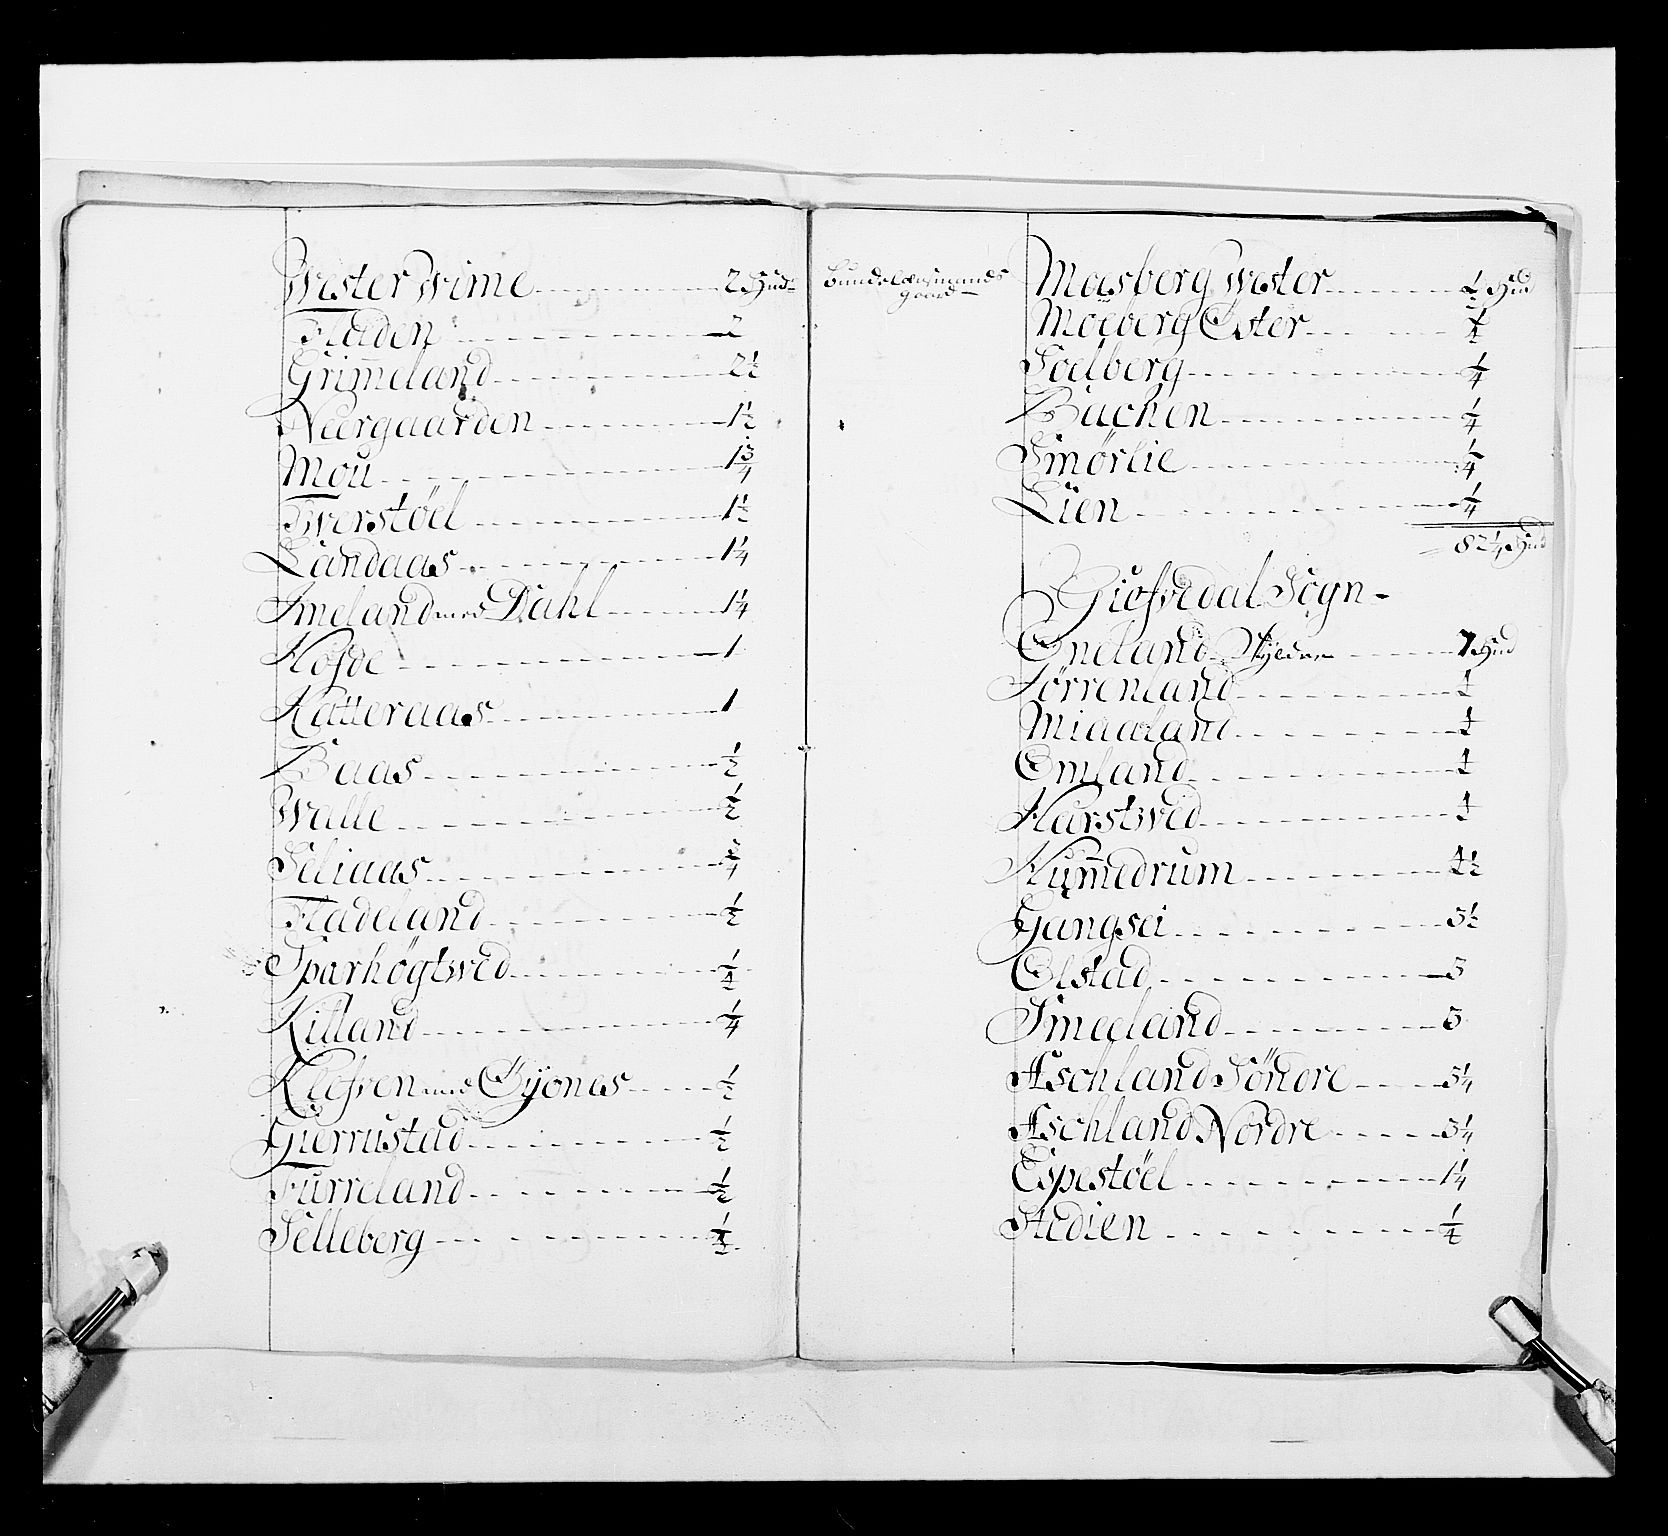 Wester Wime 2 Hud
Fladen 2
Grim̄eland 2½
Neergaarden 1½
Mou 1¾
Twerstöel 1½
Landaas 1¼
Imeland med Dahl 1¼
Kofde 1
Katteraas 1
Baas ½
Walle ½
Seliaas ¾
Fladeland ½
Sparhögtwed ½
Killand ¼
Klefven med Öÿonas ½
Gierrustad ½
Furreland ½
Selleberg
Bundelensmands
gaard
Moesberg Wester ½ Hud
Möeberg Öster
Soelberg ¼
Bachen ¼
Smörlie ¼
Lien ¼
82¼ Hud
Giofvedal Sogn
Oneland 7 Hud
Törrenland
Miaaland
Omland
Harstwed
Kum̄edrum
Gangsei 3½
Olstad 3
Smeeland 3
Aschland Söndre 3¼
Aschland Nordre 3¼
Espestöel 1¼
Stedien